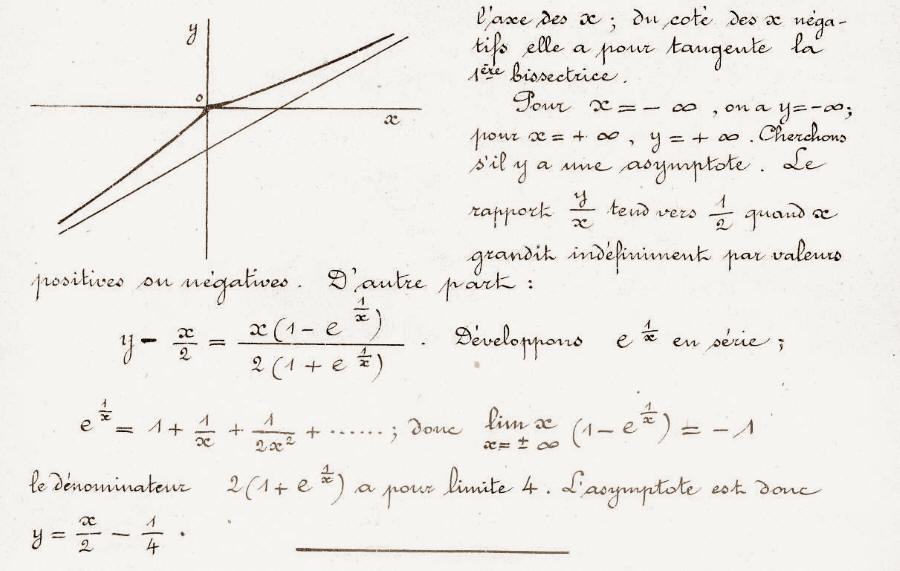 y
o
x
l'axe des x ; du coté des x néga-
tifs elle a pour tangente la
1ère bissectrice.
Pour x = - ∞ , on a y = -∞;
pour x = + ∞ , y = + ∞ . Cherchons
s'il y a une asymptote . Le
rapport y/x tend vers 1/2 quand x
grandit indéfiniment par valeurs
positives ou négatives. D'autre part :
y - x/2 = x(1 - e^(1/x)) / 2(1 + e^(1/x)) . Développons e^(1/x) en série ;
e^(1/x) = 1 + 1/x + 1/2x² + ...... ; donc lim x (1 - e^(1/x)) = -1
x = ± ∞
le dénominateur 2(1 + e^(1/x)) a pour limite 4. L'asymptote est donc
y = x/2 - 1/4 .